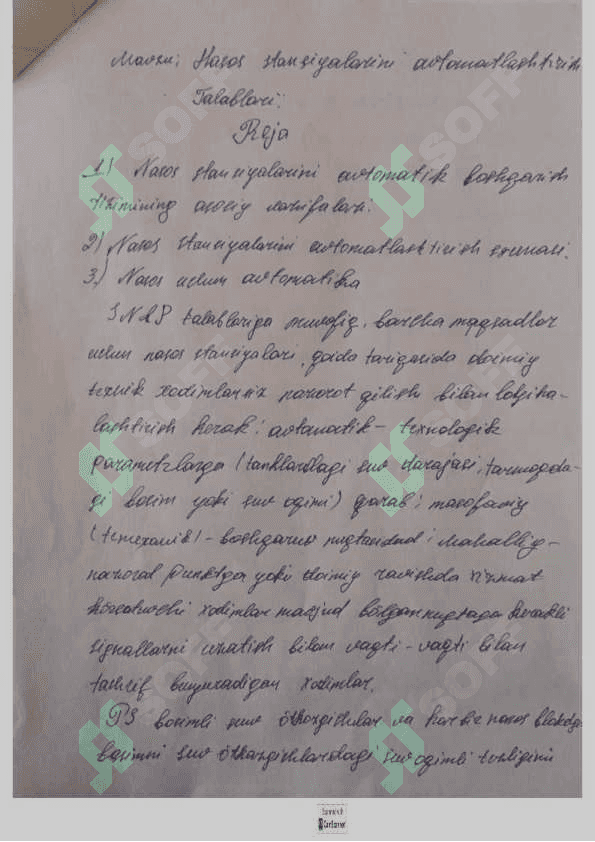 Mavzu: Nasos stansiyalarini avtomatlashtirish
Talablari:
Reja
1) Nasos stansiyalarini avtomatik boshqarish
tizimining asosiy vazifalari.
2) Nasos stansiyalarini avtomatlashtirish sxemasi.
3) Nasos uchun avtomatika
SNIP talablariga muvofiq, barcha maqsadlar
uchun nasos stansiyalari, qoida tariqasida doimiy
texnik xodimlarsiz nazorat qilish bilan loyiha-
lashtirish kerak: avtomatik - texnologik
parametrlarga (tanklardagi suv darajasi, tarmoqda-
gi bosim yoki suv oqimi) qarab; masofaviy
(temexanik) - boshqaruv nuqtasidan; Mahalliy-
nazorat punktga yoki doimiy ravishda xizmat
ko'rsatuvchi xodimlar mavjud bo'lgan nuqtaga kerakli
signallarni uzatish bilan vaqti-vaqti bilan
tashrif buyuradigan xodimlar.
PS bosimli suv o'tkazgichlar va har bir nasos blokdgi
bosimni suv o'tkazgichlardagi suv oqimli tezligini
SOFF
CamScanner